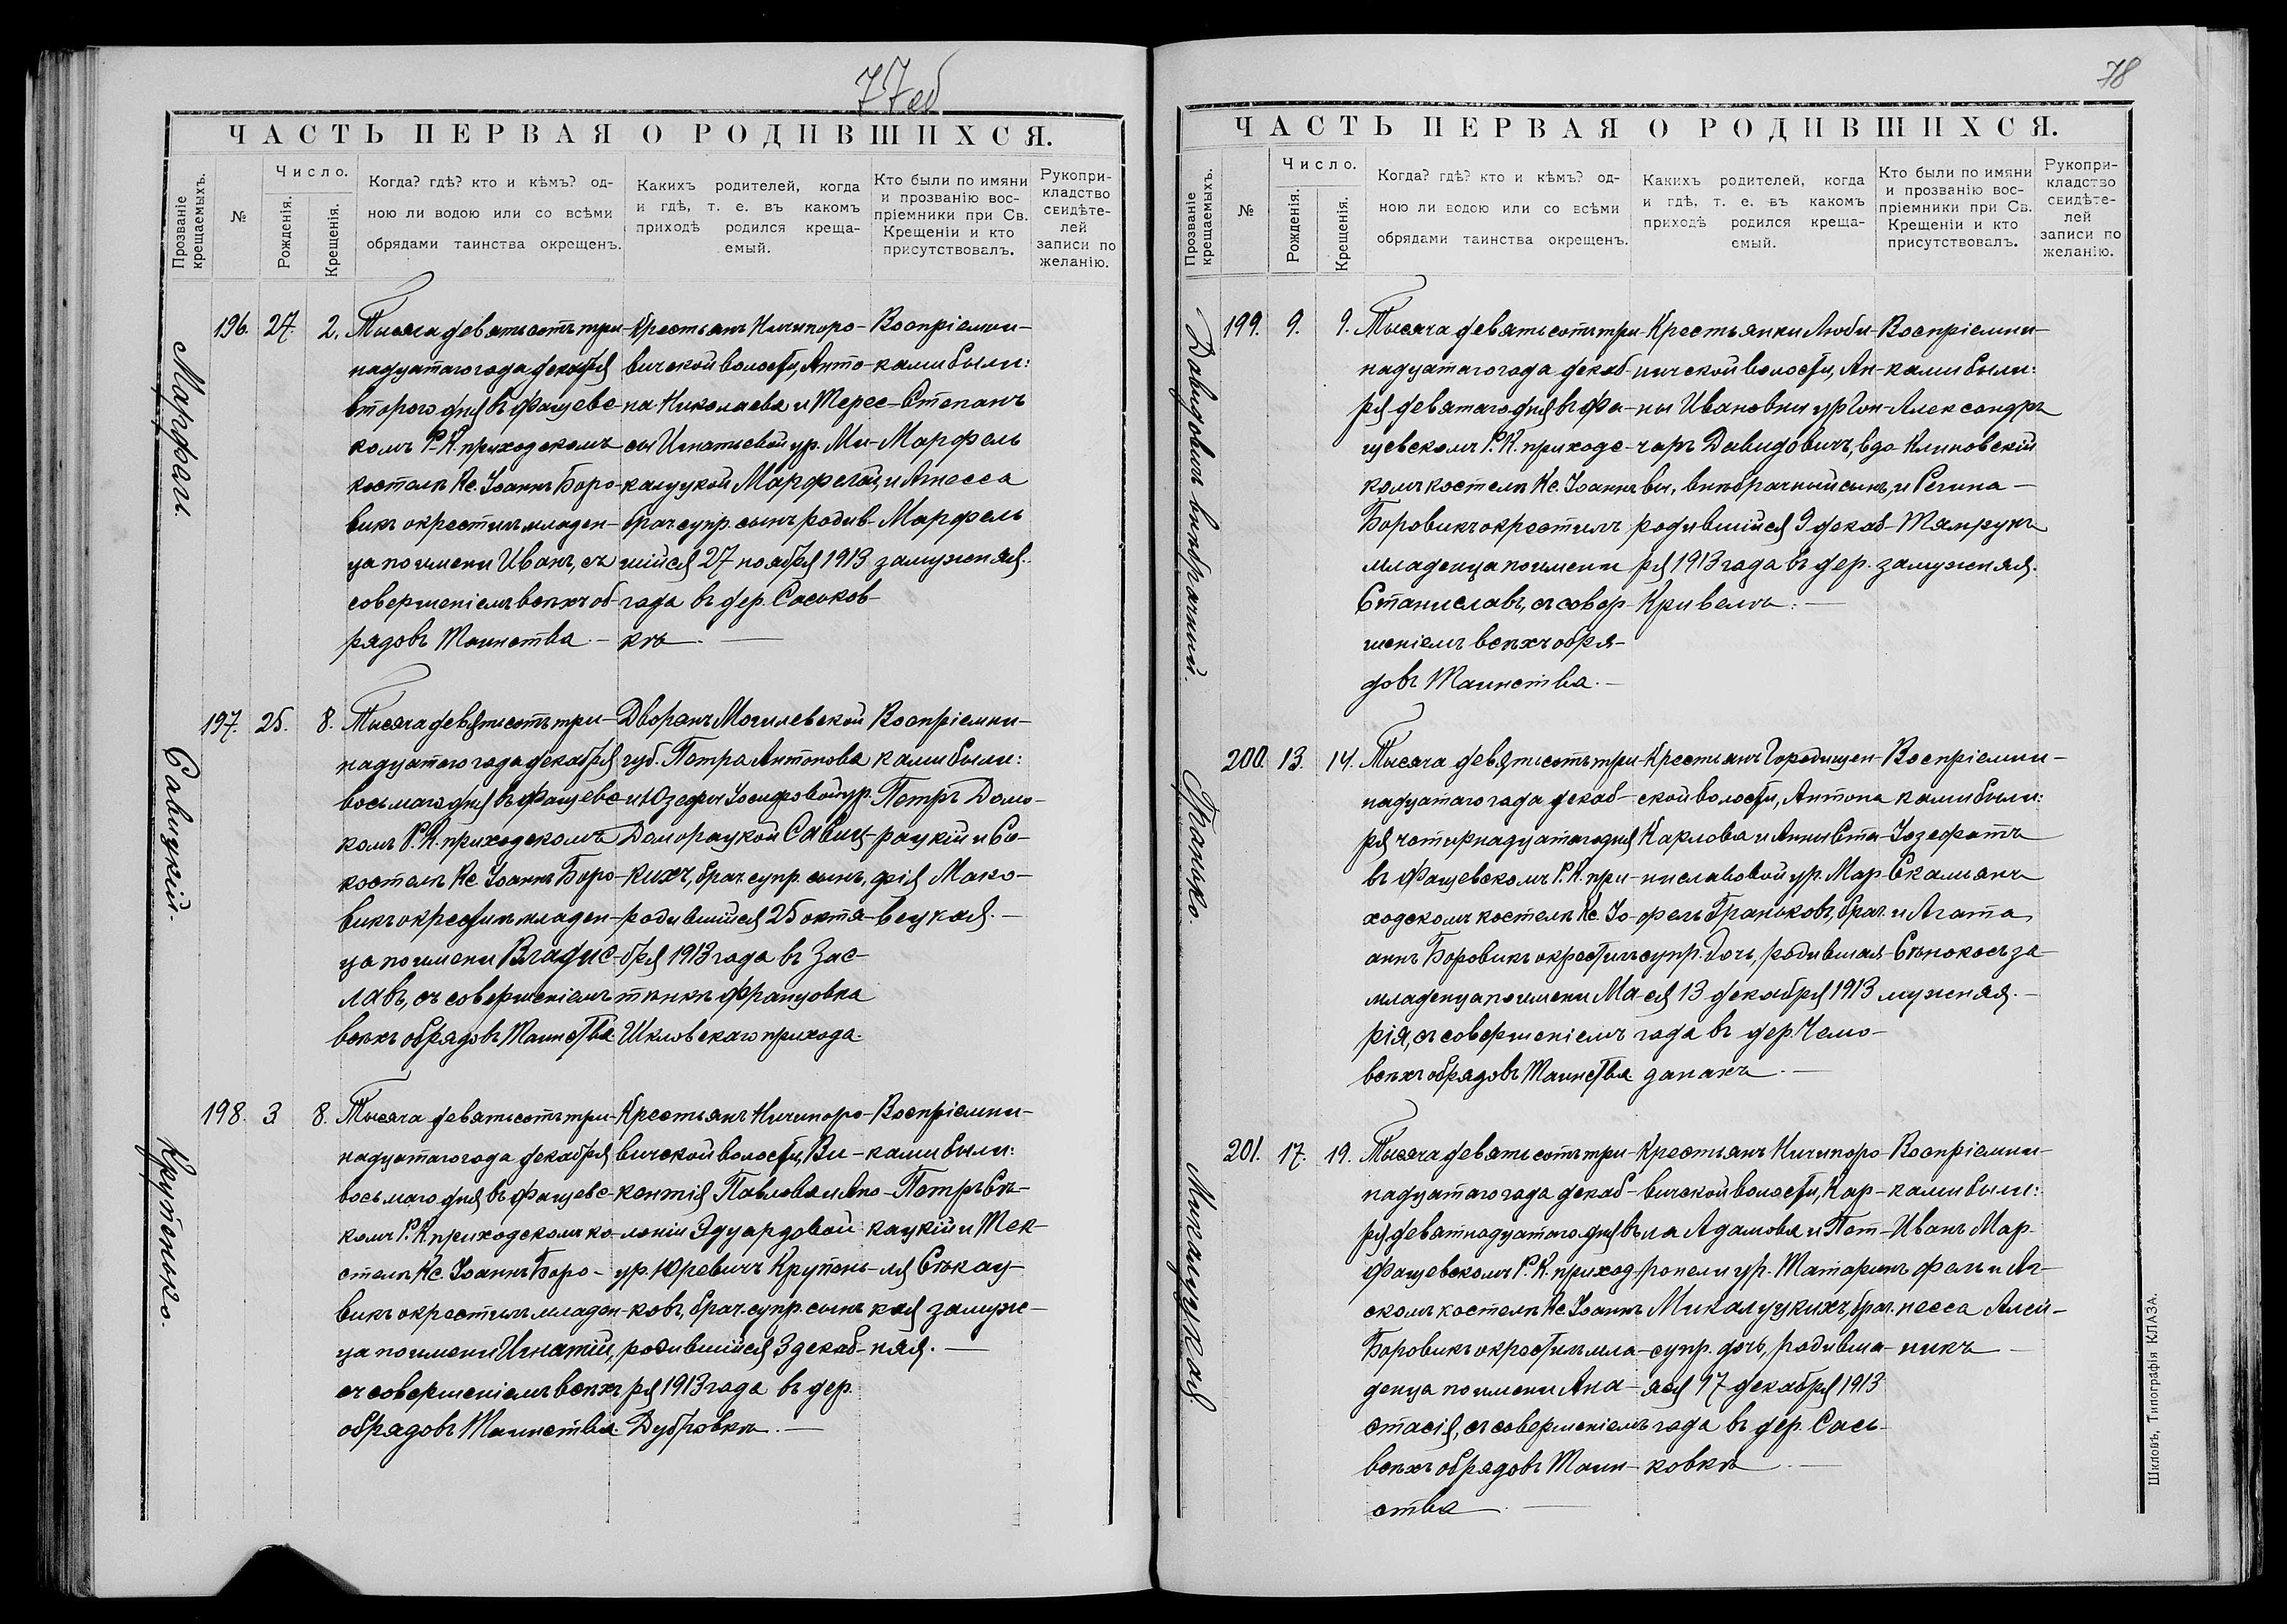 77об
ЧАСТЬ ПЕРВАЯ О РОДИВШИХСЯ.
Прозваніе крещаемыхъ.
№
Число.
Рожденія.
Крещенія.
Когда? гдѣ? кто и кѣмъ? од-
ною ли водою или со всѣми
обрядами таинства окрещенъ.
Какихъ родителей, когда
и гдѣ, т. е. въ какомъ
приходѣ родился креща-
емый.
Кто были по имяни
и прозванію вос-
пріемники при Св.
Крещеніи и кто
присутствовалъ.
Рукопри-
кладство
свидѣте-
лей
записи по
желанію.
Марфель.
196. 27. 2.
Тысяча девятьсотъ три-
надцатаго года декабря
второго дня въ Фащевс-
комъ Р.-К. приходскомъ
костелѣ Кс. Іоаннъ Боро-
викъ окрестилъ младен-
ца по имени Иванъ, съ
совершеніемъ всѣхъ об-
рядовъ Таинства. -
Крестьянъ Ничипоро-
вичской волости, Анто-
на Николаева и Терес-
сы Игнатьевой ур. Ми-
калуцкой Марфелей, и
брач. супр. сынъ, родив-
шійся 27 ноября 1913
года въ дер. Саськов-
кѣ. -
Воспріемни-
ками были:
Степанъ
Марфель
и Агнесса
Марфель
замужняя.
Савицкій.
197. 25. 8.
Тысяча девятьсотъ три-
надцатаго года декабря
восьмаго дня въ Фащевс-
комъ Р. К. приходскомъ
костелѣ Кс. Іоаннъ Боро-
викъ окрестилъ младен-
ца по имени Владис-
лавъ, съ совершеніемъ
всѣхъ обрядовъ Таинства
Дворянъ Могилевской
губ. Петра Антонова
и Юзефы Іосифовой ур.
Доморацкой Савиц-
кихъ, брач. супр. сынъ,
родившійся 25 октя-
бря 1913 года въ Зас-
тѣнкѣ Францовка
Шкловскаго прихода.
Воспріемни-
ками были:
Петръ Домо-
рацкій и Со-
фія Мако-
вецкая. -
Крупенько.
198. 3 8.
Тысяча девятьсотъ три-
надцатаго года декабря
восьмаго дня въ Фащевс-
комъ Р. К. приходскомъ ко-
стелѣ Кс. Іоаннъ Боро-
викъ окрестилъ младен-
ца по имени Игнатій,
съ совершеніемъ всѣхъ
обрядовъ Таинства.
Крестьянъ Ничипоро-
вичской волости, Ви-
кентія Павлова и Апо-
лоніи Эдуардовой
ур. Юревичъ Крупень-
ковъ, брач. супр. сынъ
родившійся 3 декаб-
ря 1913 года въ дер.
Дубровкѣ. -
Воспріемни-
ками были:
Петръ Сѣ-
кацкій и Тек-
ля Сѣкац-
кая замуж-
няя. -
78
ЧАСТЬ ПЕРВАЯ О РОДИВШИХСЯ.
Прозваніе крещаемыхъ.
№
Число.
Рожденія.
Крещенія.
Когда? гдѣ? кто и кѣмъ? од-
ною ли водою или со всѣми
обрядами таинства окрещенъ.
Какихъ родителей, когда
и гдѣ, т. е. въ какомъ
приходѣ родился креща-
емый.
Кто были по имяни
и прозванію вос-
пріемники при Св.
Крещеніи и кто
присутствовалъ.
Рукопри-
кладство
свидѣте-
лей
записи по
желанію.
Давидовичъ внѣбрачный.
199. 9. 9.
Тысяча девятьсотъ три-
надцатаго года декаб-
ря девятаго дня въ Фа-
щевскомъ Р. К. приходс-
комъ костелѣ Кс. Іоаннъ
Боровикъ окрестилъ
младенца по имени
Станиславъ, съ совер-
шеніемъ всѣхъ обря-
довъ Таинства. -
Крестьянки Люби-
ничской волости, Ан-
ны Ивановны ур. Гон-
чаръ Давидовичъ, вдо-
вы, внѣбрачный сынъ,
родившійся 9 декаб-
ря 1913 года въ дер.
Кривелъ. -
Воспріемни-
ками были:
Александръ
Клиновскій
и Регина
Тямрукъ
замужняя.
Гранько.
200. 13. 14.
Тысяча девятьсотъ три-
надцатаго года декаб-
ря четирнадцатаго дня
въ Фащевскомъ Р. К. при-
ходскомъ костелѣ Кс. Іо-
аннъ Боровикъ окрестилъ
младенца по имени Ма-
рія, съ совершеніемъ
всѣхъ обрядовъ Таинства
Крестьянъ Городищен-
ской волости, Антона
Карлова и Анны Ста-
ниславовой ур. Мар-
фель Граньковъ, брач.
супр. дочь, родившая-
ся 13 декабря 1913
года въ дер. Чемо-
данахъ. -
Воспріемни-
ками были:
Іозефатъ
Скалманъ
и Агата
Сѣнокосъ за-
мужняя. -
Микалуцкая.
201. 17. 19.
Тысяча девятьсотъ три-
надцатаго года декаб-
ря девятнадцатаго дня въ
Фащевскомъ Р. К. приход-
скомъ костелѣ Кс. Іоаннъ
Боровикъ окрестилъ мла-
денца по имени Ана-
стасія, съ совершеніемъ
всѣхъ обрядовъ Таин-
ства.
Крестьянъ Ничипоро-
вичской волости, Кар-
ла Адамова и Пет-
ронели ур. Татаринъ
Микалуцкихъ, брач.
супр. дочь, родивша-
яся 17 декабря 1913
года въ дер. Сась-
ковкѣ. -
Воспріемни-
ками были:
Иванъ Мар-
фель и Аг-
несса Алей-
никъ
Шкловъ, Типографія КЛАЗА.